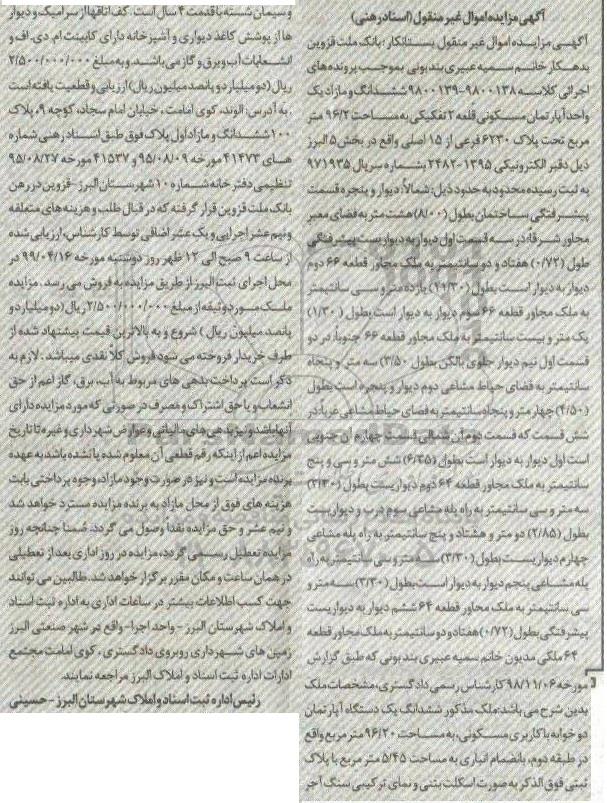 آگهی مزایده اموال غیر منقول (اسناد رهنی)
آگهی مزایده اموال غیر منقول بستانکار : بانک ملت قزوین
بدهکار خانم سمیه عبیری بندبونی بموجب پرونده های
اجرائی کلاسه ۹۸۰۰۱۳۸-۹۸۰۰۱۳۹ ششدانگ و مازاد یک
واحد آپارتمان مسکونی قطعه ۲ تفکیکی به مساحت ۹۶/۲ متر
مربع تحت پلاک ۶۲۳۰ فرعی از ۱۵ اصلی واقع در بخش ۵ البرز
ذیل دفتر الکترونیکی ۱۳۹۵-۲۴۸۲ بشماره سریال ۹۷۱۹۳۵
به ثبت رسیده محدود به حدود ذیل: شمالاً: دیوار و پنجره قسمت
پیشرفتگی ساختمان بطول (۸/۰۰) هشت متر به فضای معبر
مجاور شرقاً: در سه قسمت اول دیوار به دیوار یست پیشرفتگی
طول (۰/۷۲) هفتاد و دو سانتیمتر به ملک مجاور قطعه ۶۶ دوم
دیوار به دیوار است بطول (۱۱/۳۰) یازده متر و سی سانتیمتر
به ملک مجاور قطعه ۶۶ سوم دیوار به دیوار است بطول (۱/۲۰)
یک متر و بیست سانتیمتر به ملک مجاور قطعه ۶۶ جنوباً: در دو
قسمت اول نیم دیوار جلوی بالکن بطول (۳/۵۰) سه متر و پنجاه
سانتیمتر به فضای حیاط مشاعی دوم دیوار و پنجره است بطول
(۴/۵۰) چهار متر و پنجاه سانتیمتر به فضای حیاط مشاعی غرباً در
شش قسمت که قسمت دوم آن شمالی قسمت چهارم آن جنوبی
است اول دیوار به دیوار است بطول (۶/۳۵) شش متر و سی و پنج
سانتیمتر به ملک مجاور قطعه ۶۴ دوم دیوار یست بطول (۳/۳۰)
سه متر و سی سانتیمتر به راه پله مشاعی سوم درب و دیواریست
بطول (۲/۸۵) دو متر و هشتاد و پنج سانتیمتر به راه پله مشاعی
چهارم دیواریست بطول (۳/۳۰) سه متر و سی سانتیمتر به راه
پله مشاعی پنجم دیوار به دیوار است بطول (۳/۳۰) سه متر و
سی سانتیمتر به ملک مجاور قطعه ۶۴ ششم دیوار به دیواریست
پیشرفتگی بطول (۰/۷۲) هفتاد و دو سانتیمتر به ملک مجاور قطعه
۶۴ ملکی مدیون خانم سمیه عبیری بندبونی که طبق گزارش
مورخه ۹۸/۱۱/۰۶ کارشناس رسمی دادگستری، مشخصات ملک
بدین شرح می باشد: ملک مذکور ششدانگ یک دستگاه آپارتمان
دو خوابه با کاربری مسکونی، به مساحت ۹۶/۲۰ متر مربع واقع
در طبقه دوم، بانضمام انباری به مساحت ۵/۴۵ متر مربع با پلاک
ثبتی فوق الذکر به صورت اسکلت بتنی و نمای ترکیبی سنگ آجر
و سیمان شسته با قدمت ۴ سال است. کف اتاقها از سرامیک و دیوار
ها از پوشش کاغذ دیواری و آشپزخانه دارای کابینت ام. دی. اف و
انشعابات آب و برق و گاز می باشد. و به مبلغ ۲/۵۰۰/۰۰۰/۰۰۰
ریال (دو میلیارد و پانصد میلیون ریال) ارزیابی و قطعیت یافته است
. به آدرس: الوند، کوی امامت ، خیابان امام سجاد، کوچه ۹، پلاک
۱۰۰ ششدانگ و مازاد اول پلاک فوق طبق اسناد رهنی شماره
های ۴۱۴۷۳ مورخه ۹۵/۰۸/۰۹ و ۴۱۵۳۷ مورخه ۹۵/۰۸/۲۷
تنظیمی دفترخانه شماره ۱۰ شهرستان البرز - قزوین در رهن
بانک ملت قزوین قرار گرفته که در قبال طلب و هزینه های متعلقه
و نیم عشر اجرایی و یک عشر اضافی توسط کارشناس، ارزیابی شده
از ساعت ۹ صبح الی ۱۲ ظهر روز دوشنبه مورخه ۹۹/۰۴/۱۶ در
محل اجرای ثبت البرز از طریق مزایده به فروش می رسد . مزایده
ملک مورد وثیقه از مبلغ ۲/۵۰۰/۰۰۰/۰۰۰ ریال (دو میلیارد و
پانصد میلیون ریال ) شروع و به بالاترین قیمت پیشنهاد شده از
طرف خریدار فروخته می شود فروش کلا نقدی میباشد . لازم به
ذکر است پرداخت بدهی های مربوط به آب، برق، گاز اعم از حق
انشعاب و یا حق اشتراک و مصرف در صورتی که مورد مزایده دارای
آنها باشد و نیز بدهی های مالیاتی و عوارض شهرداری و غیره تا تاریخ
مزایده اعم از اینکه رقم قطعی آن معلوم شده یا نشده باشد به عهده
برنده مزایده است و نیز در صورت وجود مازاد، وجوه پرداختی بابت
هزینه های فوق از محل مازاد به برنده مزایده مسترد خواهد شد
و نیم عشر و حق مزایده نقدا وصول می گردد. ضمنا چنانچه روز
مزایده تعطیل رسمی گردد، مزایده در روز اداری بعد از تعطیلی
در همان ساعت و مکان مقرر برگزار خواهد شد. طالبین می توانند
جهت کسب اطلاعات بیشتر در ساعات اداری به اداره ثبت اسناد
و املاک شهرستان البرز - واحد اجرا- واقع در شهر صنعتی البرز
زمین های شهرداری روبروی دادگستری ، کوی امامت مجتمع
ادارات اداره ثبت اسناد و املاک البرز مراجعه نمایند.
رئیس اداره ثبت اسناد و املاک شهرستان البرز - حسینی